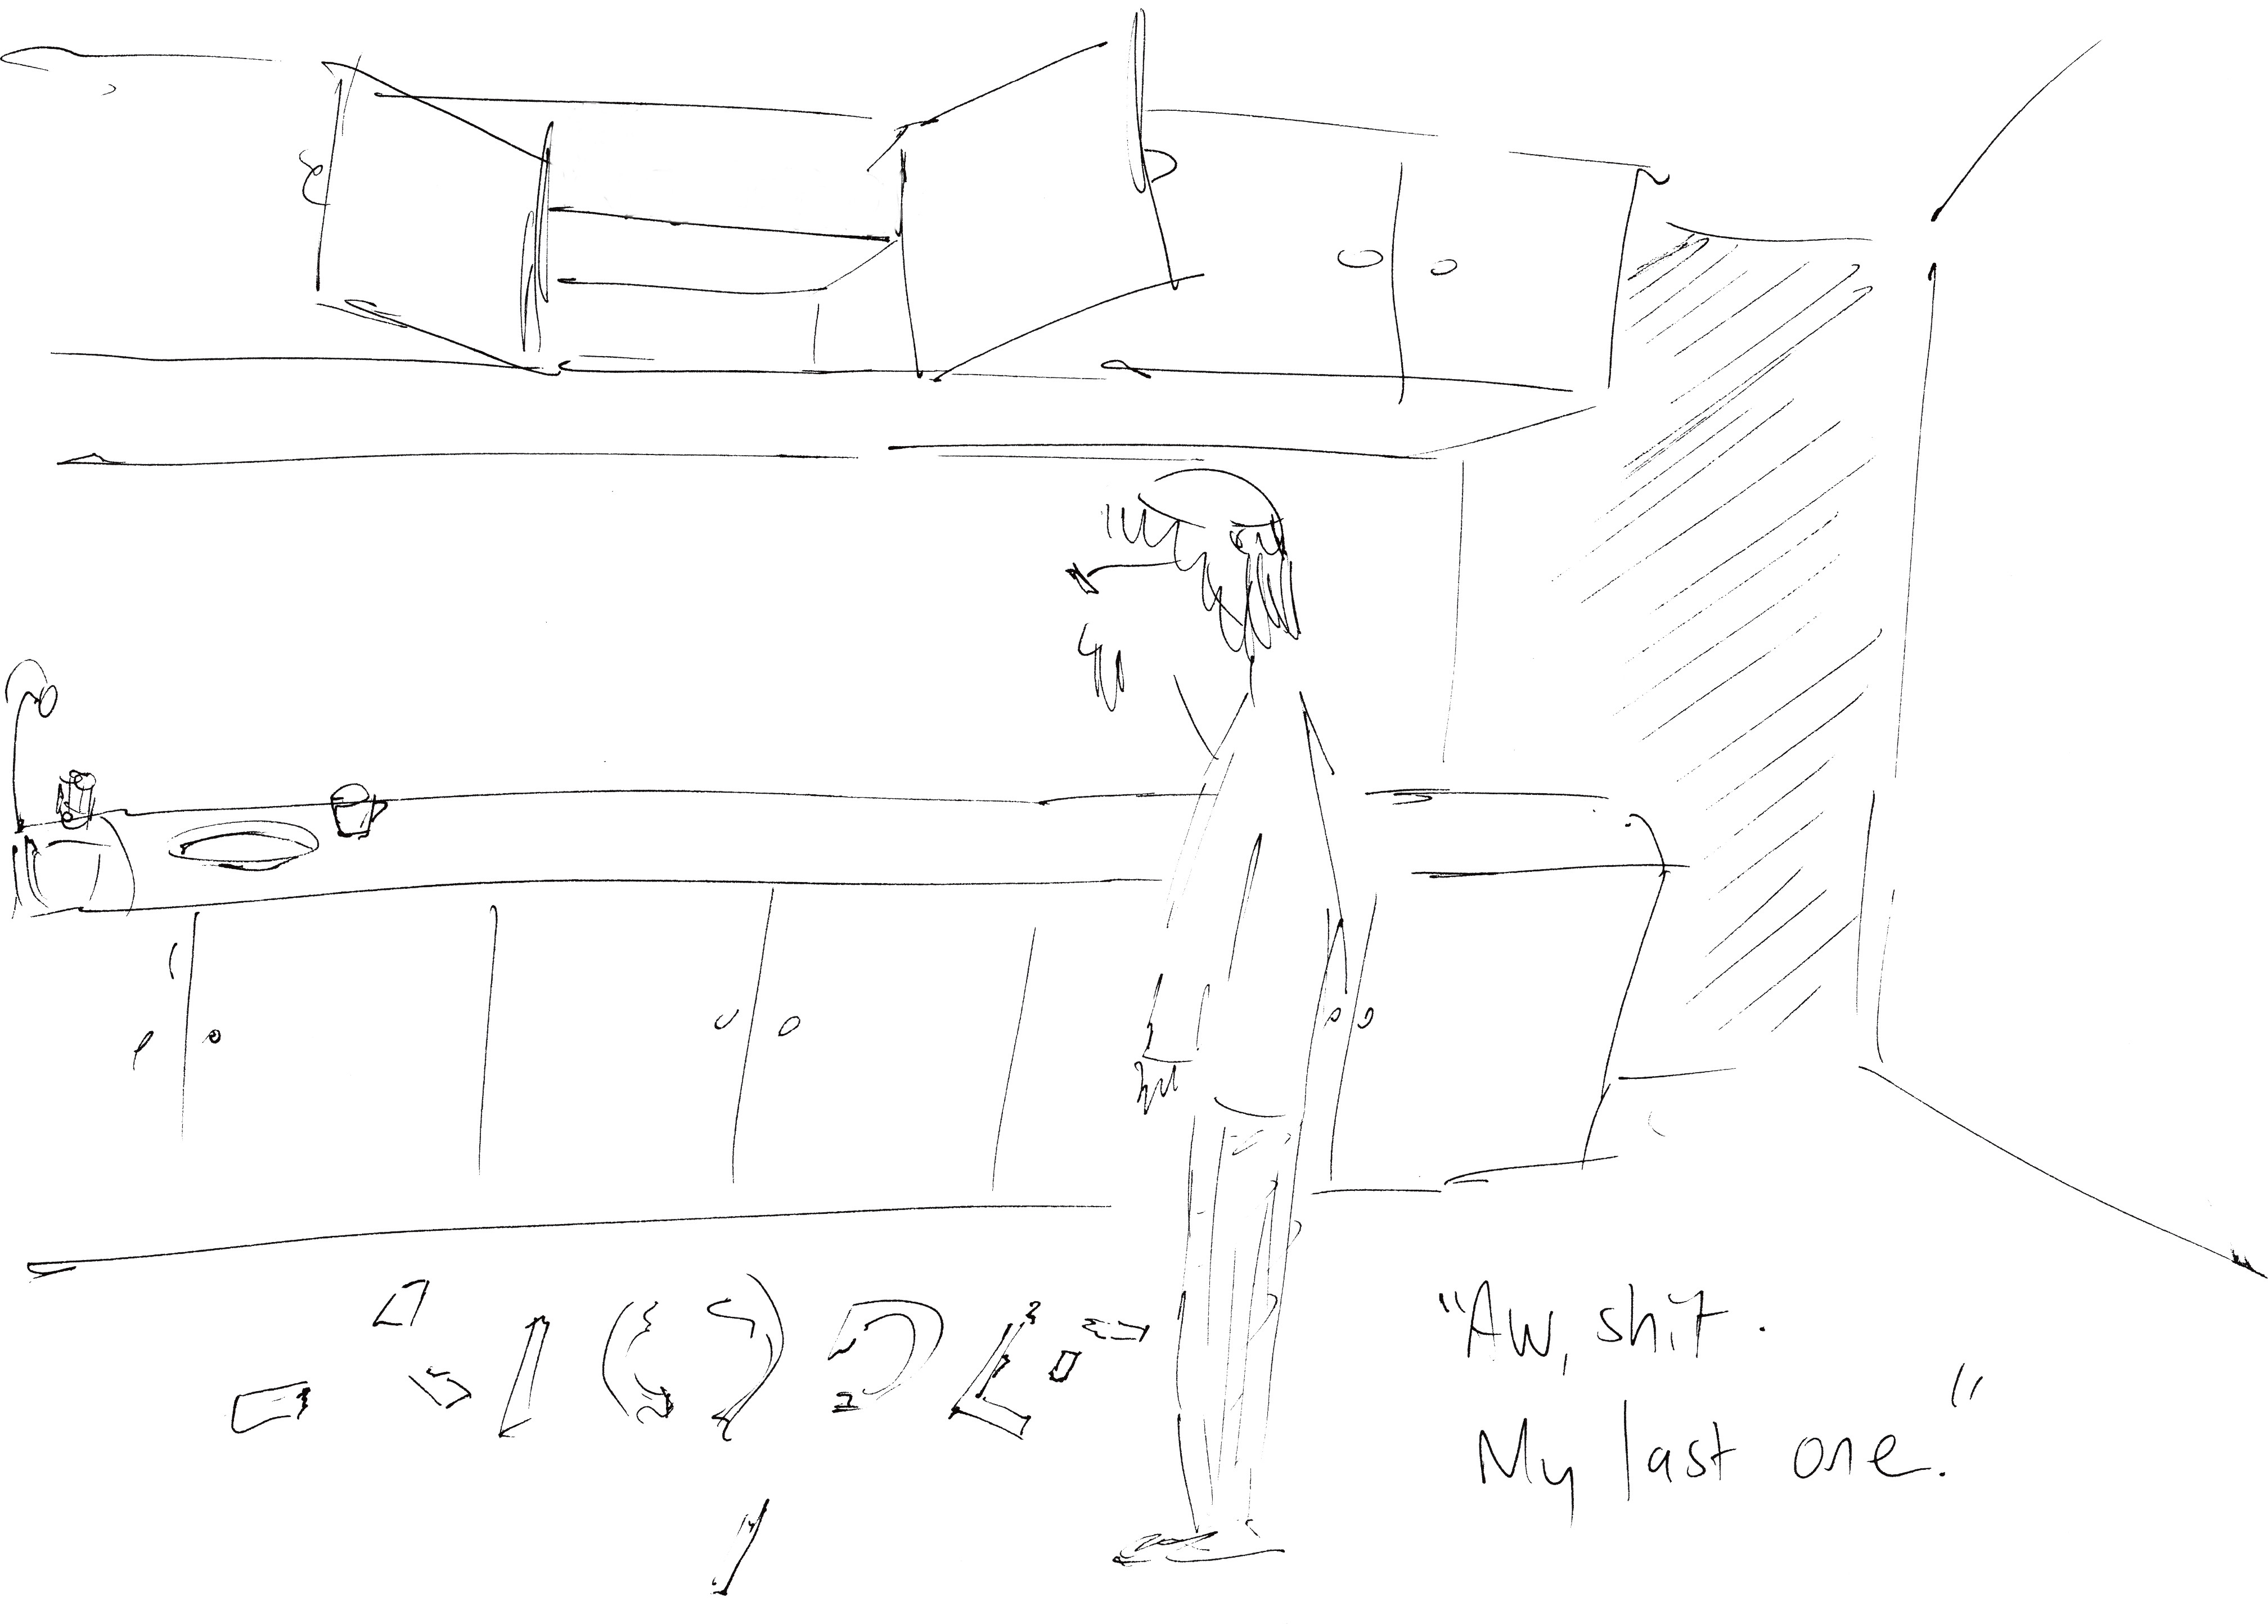 "Aw, shit.
My last one."